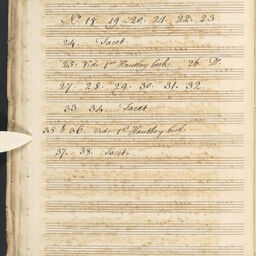 No 18. 19. 20. 21. 22. 23
24. Tacet.
25. Vide 1st Hautboy book. 26. Do.
27. 28. 29. 30. 31. 32.
33. 34. Tacet.
35 & 36. Vide 1st Hautboy book.
37. 38. Tacet.